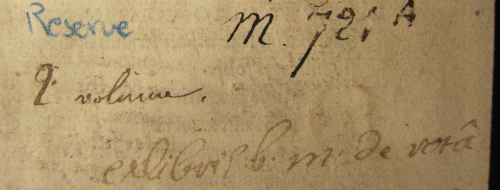 Reserve m. 721 A
2e volume.
exlibris b. m. de rotâ